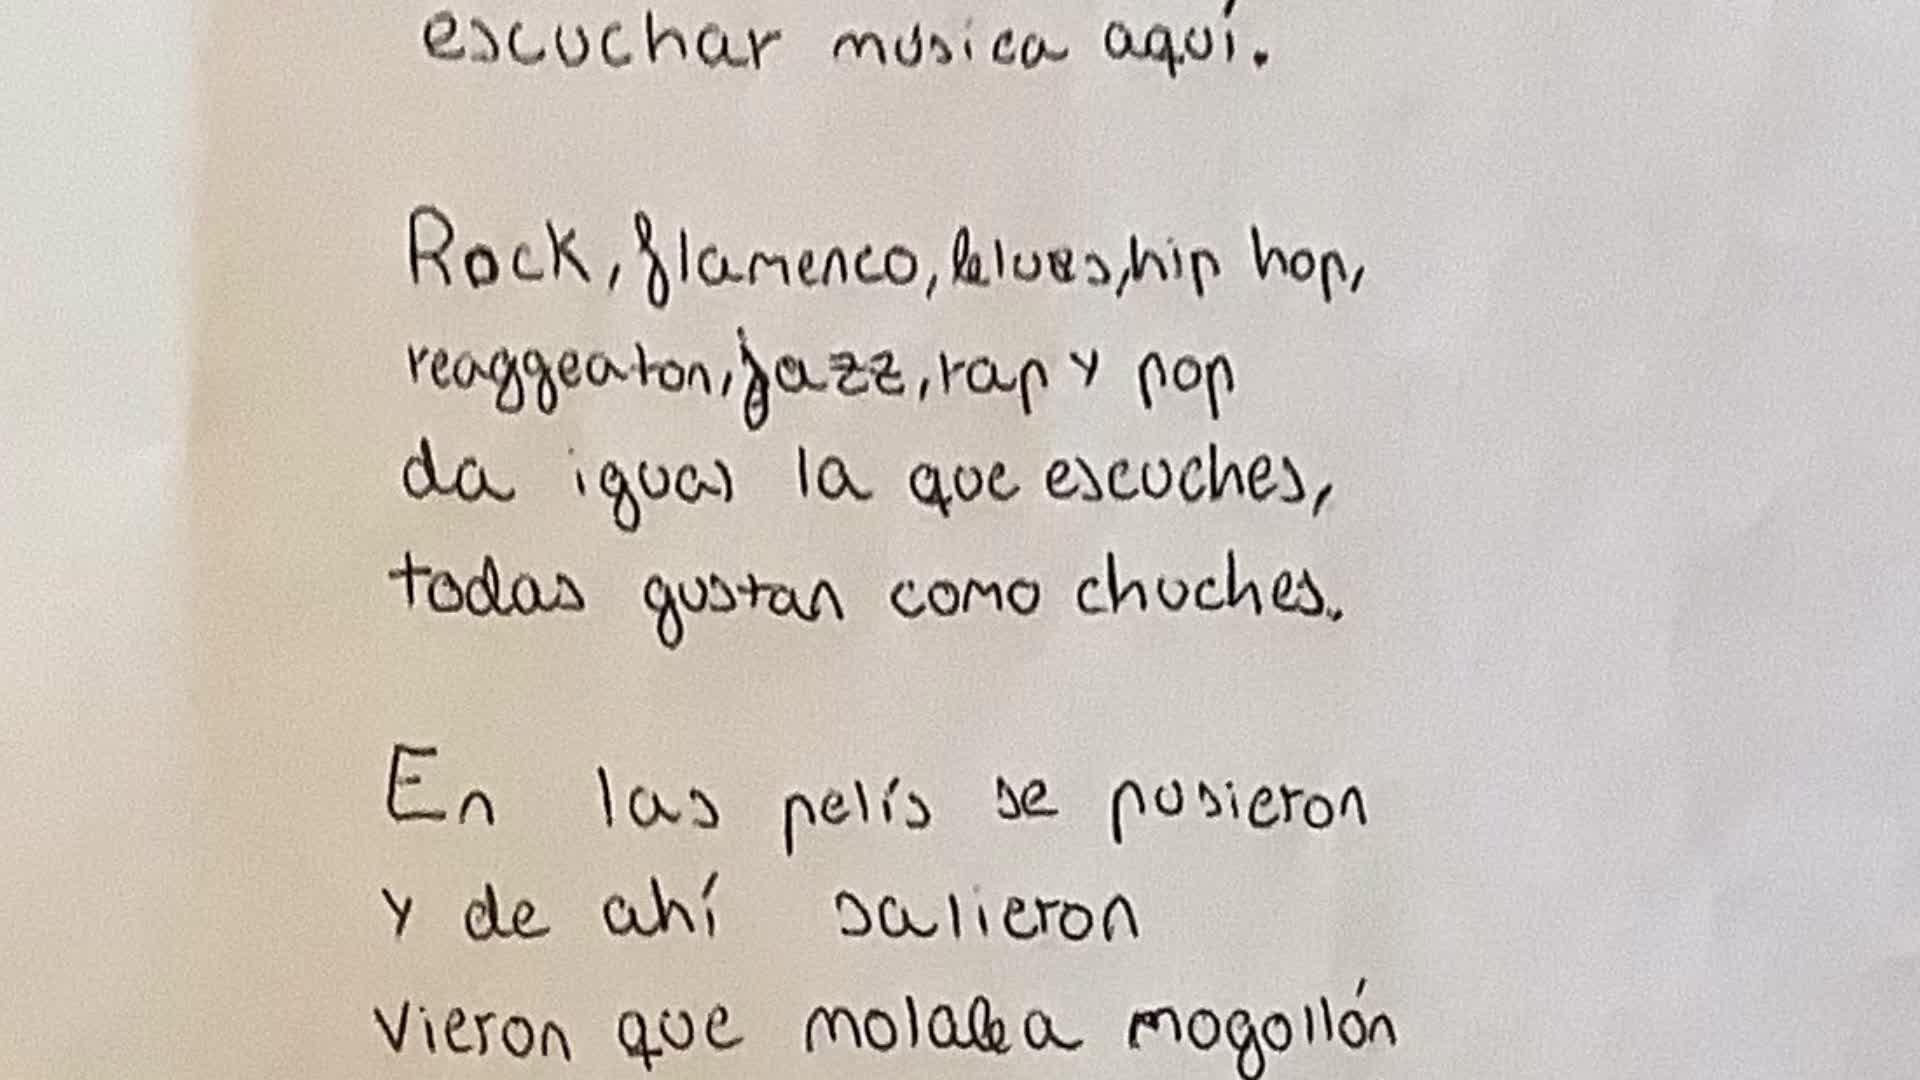 escuchar musica aquí.
Rock, flamenco, blues, hip hop,
reaggeaton, jazz, rap y pop
da igual la que escuches,
todas gustan como chuches.
En las pelís se pusieron
y de ahí salieron
vieron que molaba mogollón